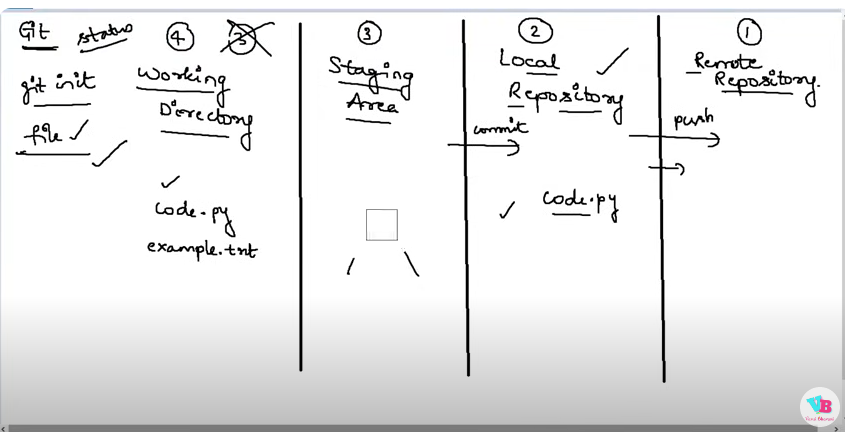 Git status
git init
file ✓
④ ③
Working
Directory
code.py
example.txt
③
Staging
Area
commit
②
Local
Repository
code.py
push
①
Remote
Repository.
VB